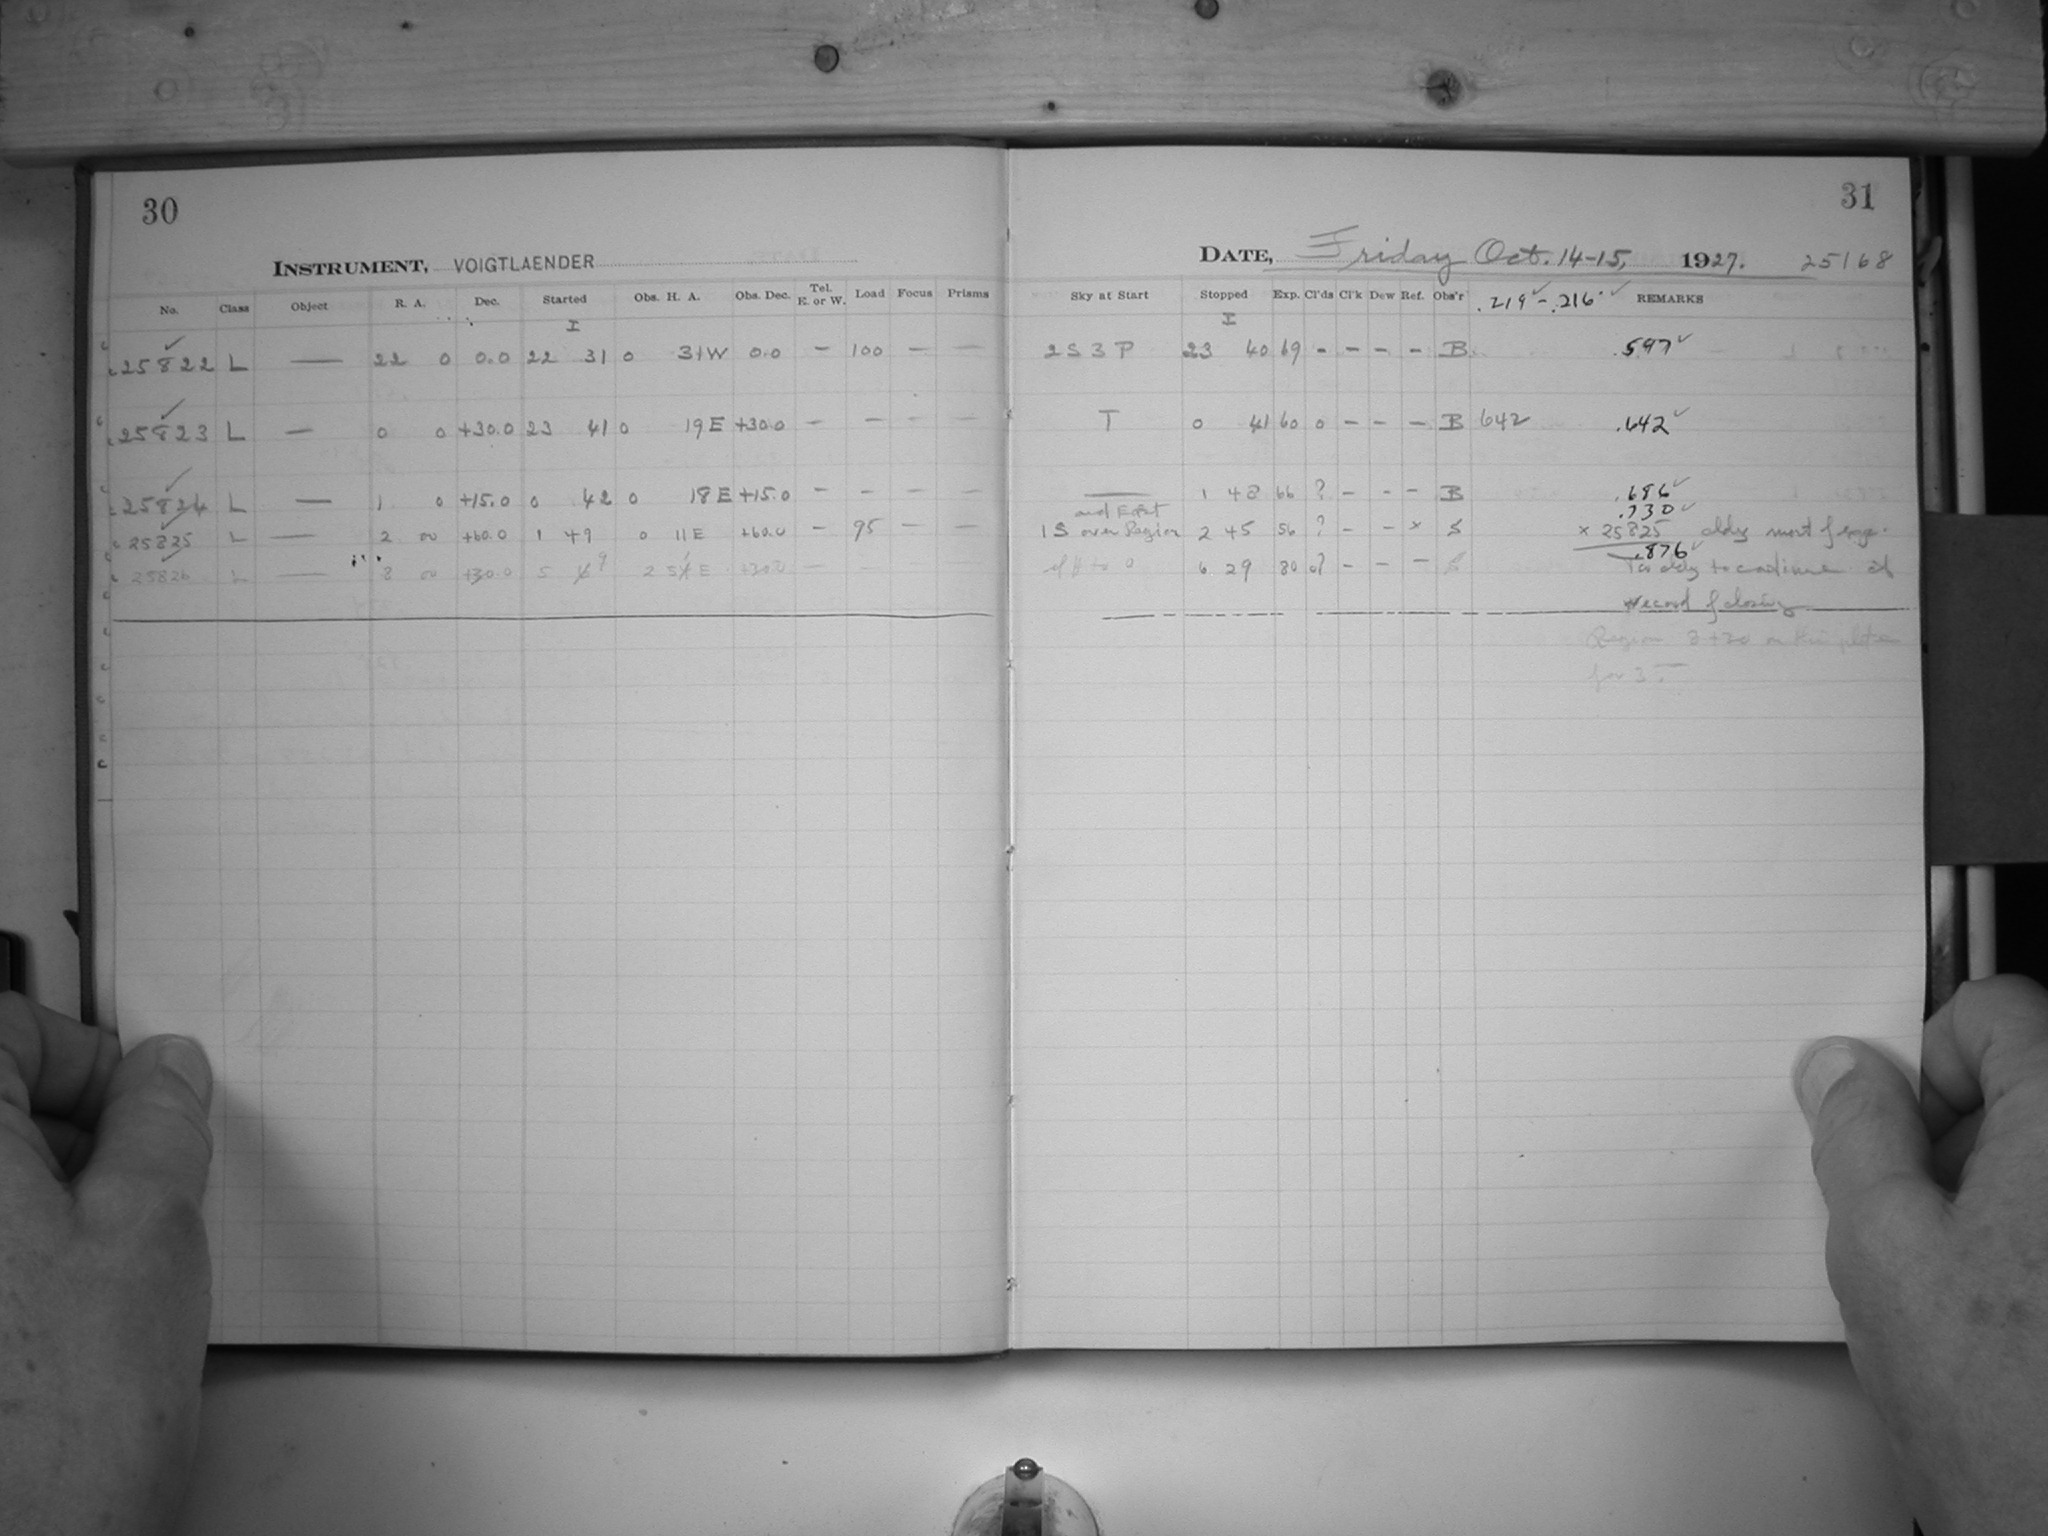 30
INSTRUMENT, VOIGTLAENDER
No. Class Object R. A. Dec. Started Obs. H. A. Obs. Dec. Tel. E. or W. Load Focus Prisms
I
25822 L — 22 0 0.0 22 31 0 31W 0.0 — 100 — —
25823 L — 0 0 +30.0 23 41 0 19E +30.0 — — — —
25824 L — 1 0 +15.0 0 42 0 18E +15.0 — — — —
25825 L — 2 00 +60.0 1 49 0 11E +60.0 — 95 — —
25826 L — 8 00 +30.0 5 9 2 51E +30.0 — —
31
DATE, Friday Oct. 14-15, 1927. 25168
Sky at Start Stopped Exp. Cl'ds Cl'k Dew Ref. Obs'r .219 - .216 REMARKS
I
2 S 3 P 23 40 69 - - - - B .597
T 0 41 60 0 - - - B 642 .642
— 1 48 66 ? - - - B .686
and East .730
1 S over Region 2 45 56 ? - - x S x 25825 cldy most of expo.
.876
6 29 80 ? - - - Too cldy to continue at
record of closing
Region 8+30 on this plate
for 3